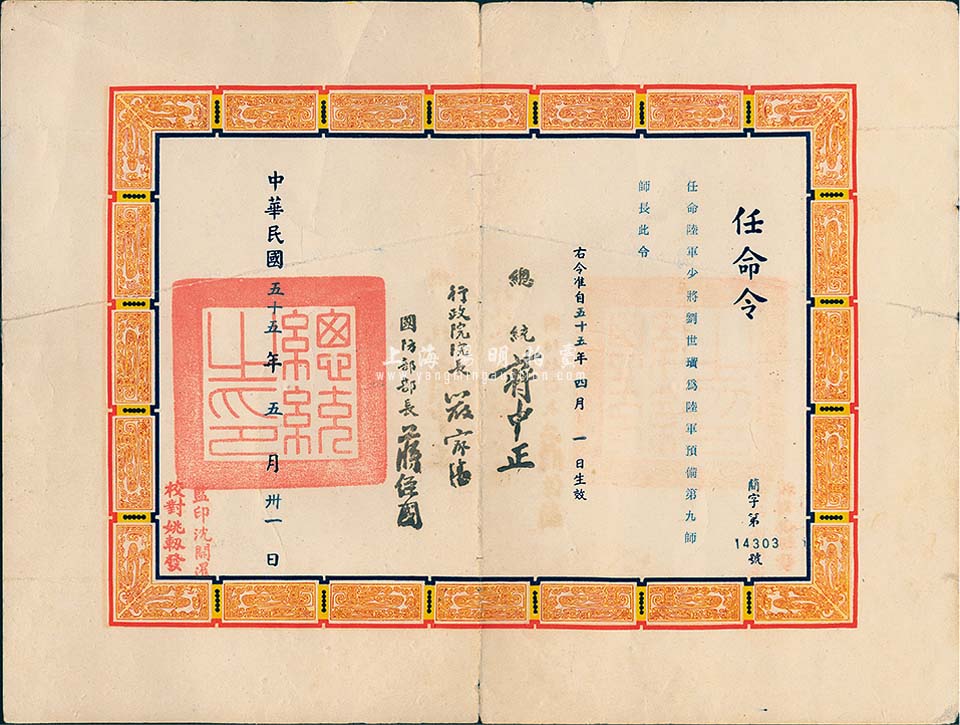 任命令
簡字第
14303
號
任命陸軍少將劉世瓚爲陸軍預備第九師
師長此令
右令准自五十五年四月一日生效
總統蔣中正
行政院院長嚴家淦
國防部部長蔣經國
中華民國五十五年五月卅一日
總統之印
監印沈開灝
校對姚毅發
上海陽明拍賣
www.yangmingauction.com